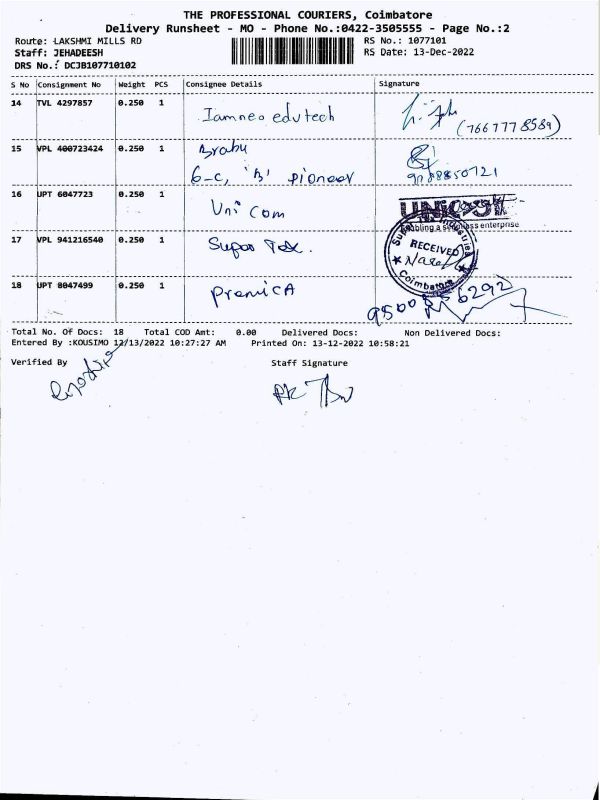 THE PROFESSIONAL COURIERS, Coimbatore
Delivery Runsheet - MO - Phone No.:0422-3505555 - Page No.:2
Route: LAKSHMI MILLS RD RS No.: 1077101
Staff: JEHADEESH RS Date: 13-Dec-2022
DRS No.: DCJB107710102
S No Consignment No Weight PCS Consignee Details Signature
14 TVL 4297857 0.250 1 Iamneo edutech (7667778589)
15 VPL 400723424 0.250 1 Brabu
6-C, 'B' pioneer
16 UPT 6047723 0.250 1 Uni Com
enterprise
17 VPL 941216540 0.250 1 Supar Tex.
RECEIVED
Coimbatore
18 UPT 8047499 0.250 1 PremicA
Total No. Of Docs: 18 Total COD Amt: 0.00 Delivered Docs: Non Delivered Docs:
Entered By :KOUSIMO 12/13/2022 10:27:27 AM Printed On: 13-12-2022 10:58:21
Verified By Staff Signature